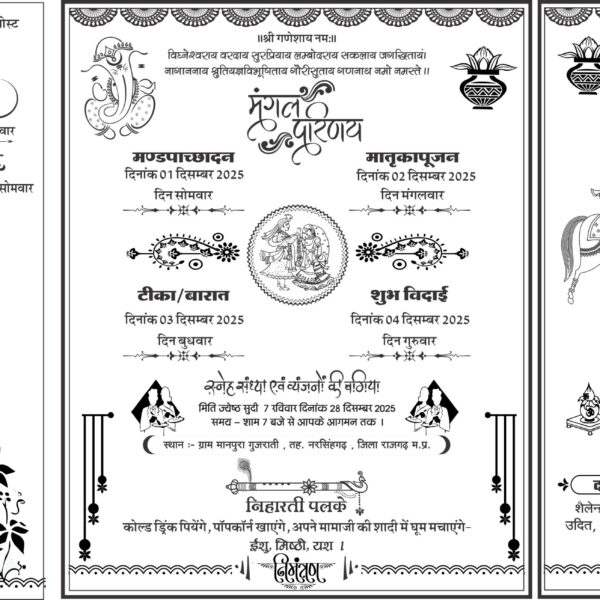 पोस्ट
वार
सोमवार
॥श्री गणेशाय नमः॥
विघ्नेश्वराय वरदाय सुरप्रियाय लम्बोदराय सकलाय जगद्धितायं।
नागाननाय श्रुतियज्ञविभूषिताय गौरीसुताय गणनाथ नमो नमस्ते।।
मंगल
परिणय
मण्डपाच्छादन
दिनांक 01 दिसम्बर 2025
दिन सोमवार
मातृकापूजन
दिनांक 02 दिसम्बर 2025
दिन मंगलवार
टीका/बारात
दिनांक 03 दिसम्बर 2025
दिन बुधवार
शुभ विदाई
दिनांक 04 दिसम्बर 2025
दिन गुरुवार
स्नेह संध्या एवं व्यंजनों की बगिया
मिति ज्येष्ठ सुदी 7 रविवार दिनांक 28 दिसम्बर 2025
समय – शाम 7 बजे से आपके आगमन तक ।
स्थान :- ग्राम मानपुरा गुजराती , तह. नरसिंहगढ़ , जिला राजगढ़ म.प्र.
निहारती पलके
कोल्ड ड्रिंक पियेंगे, पॉपकॉर्न खाएंगे, अपने मामाजी की शादी में घूम मचाएंगे-
ईशु, मिष्ठी, राश ।
निमंत्रण
शैलेन
उदित,